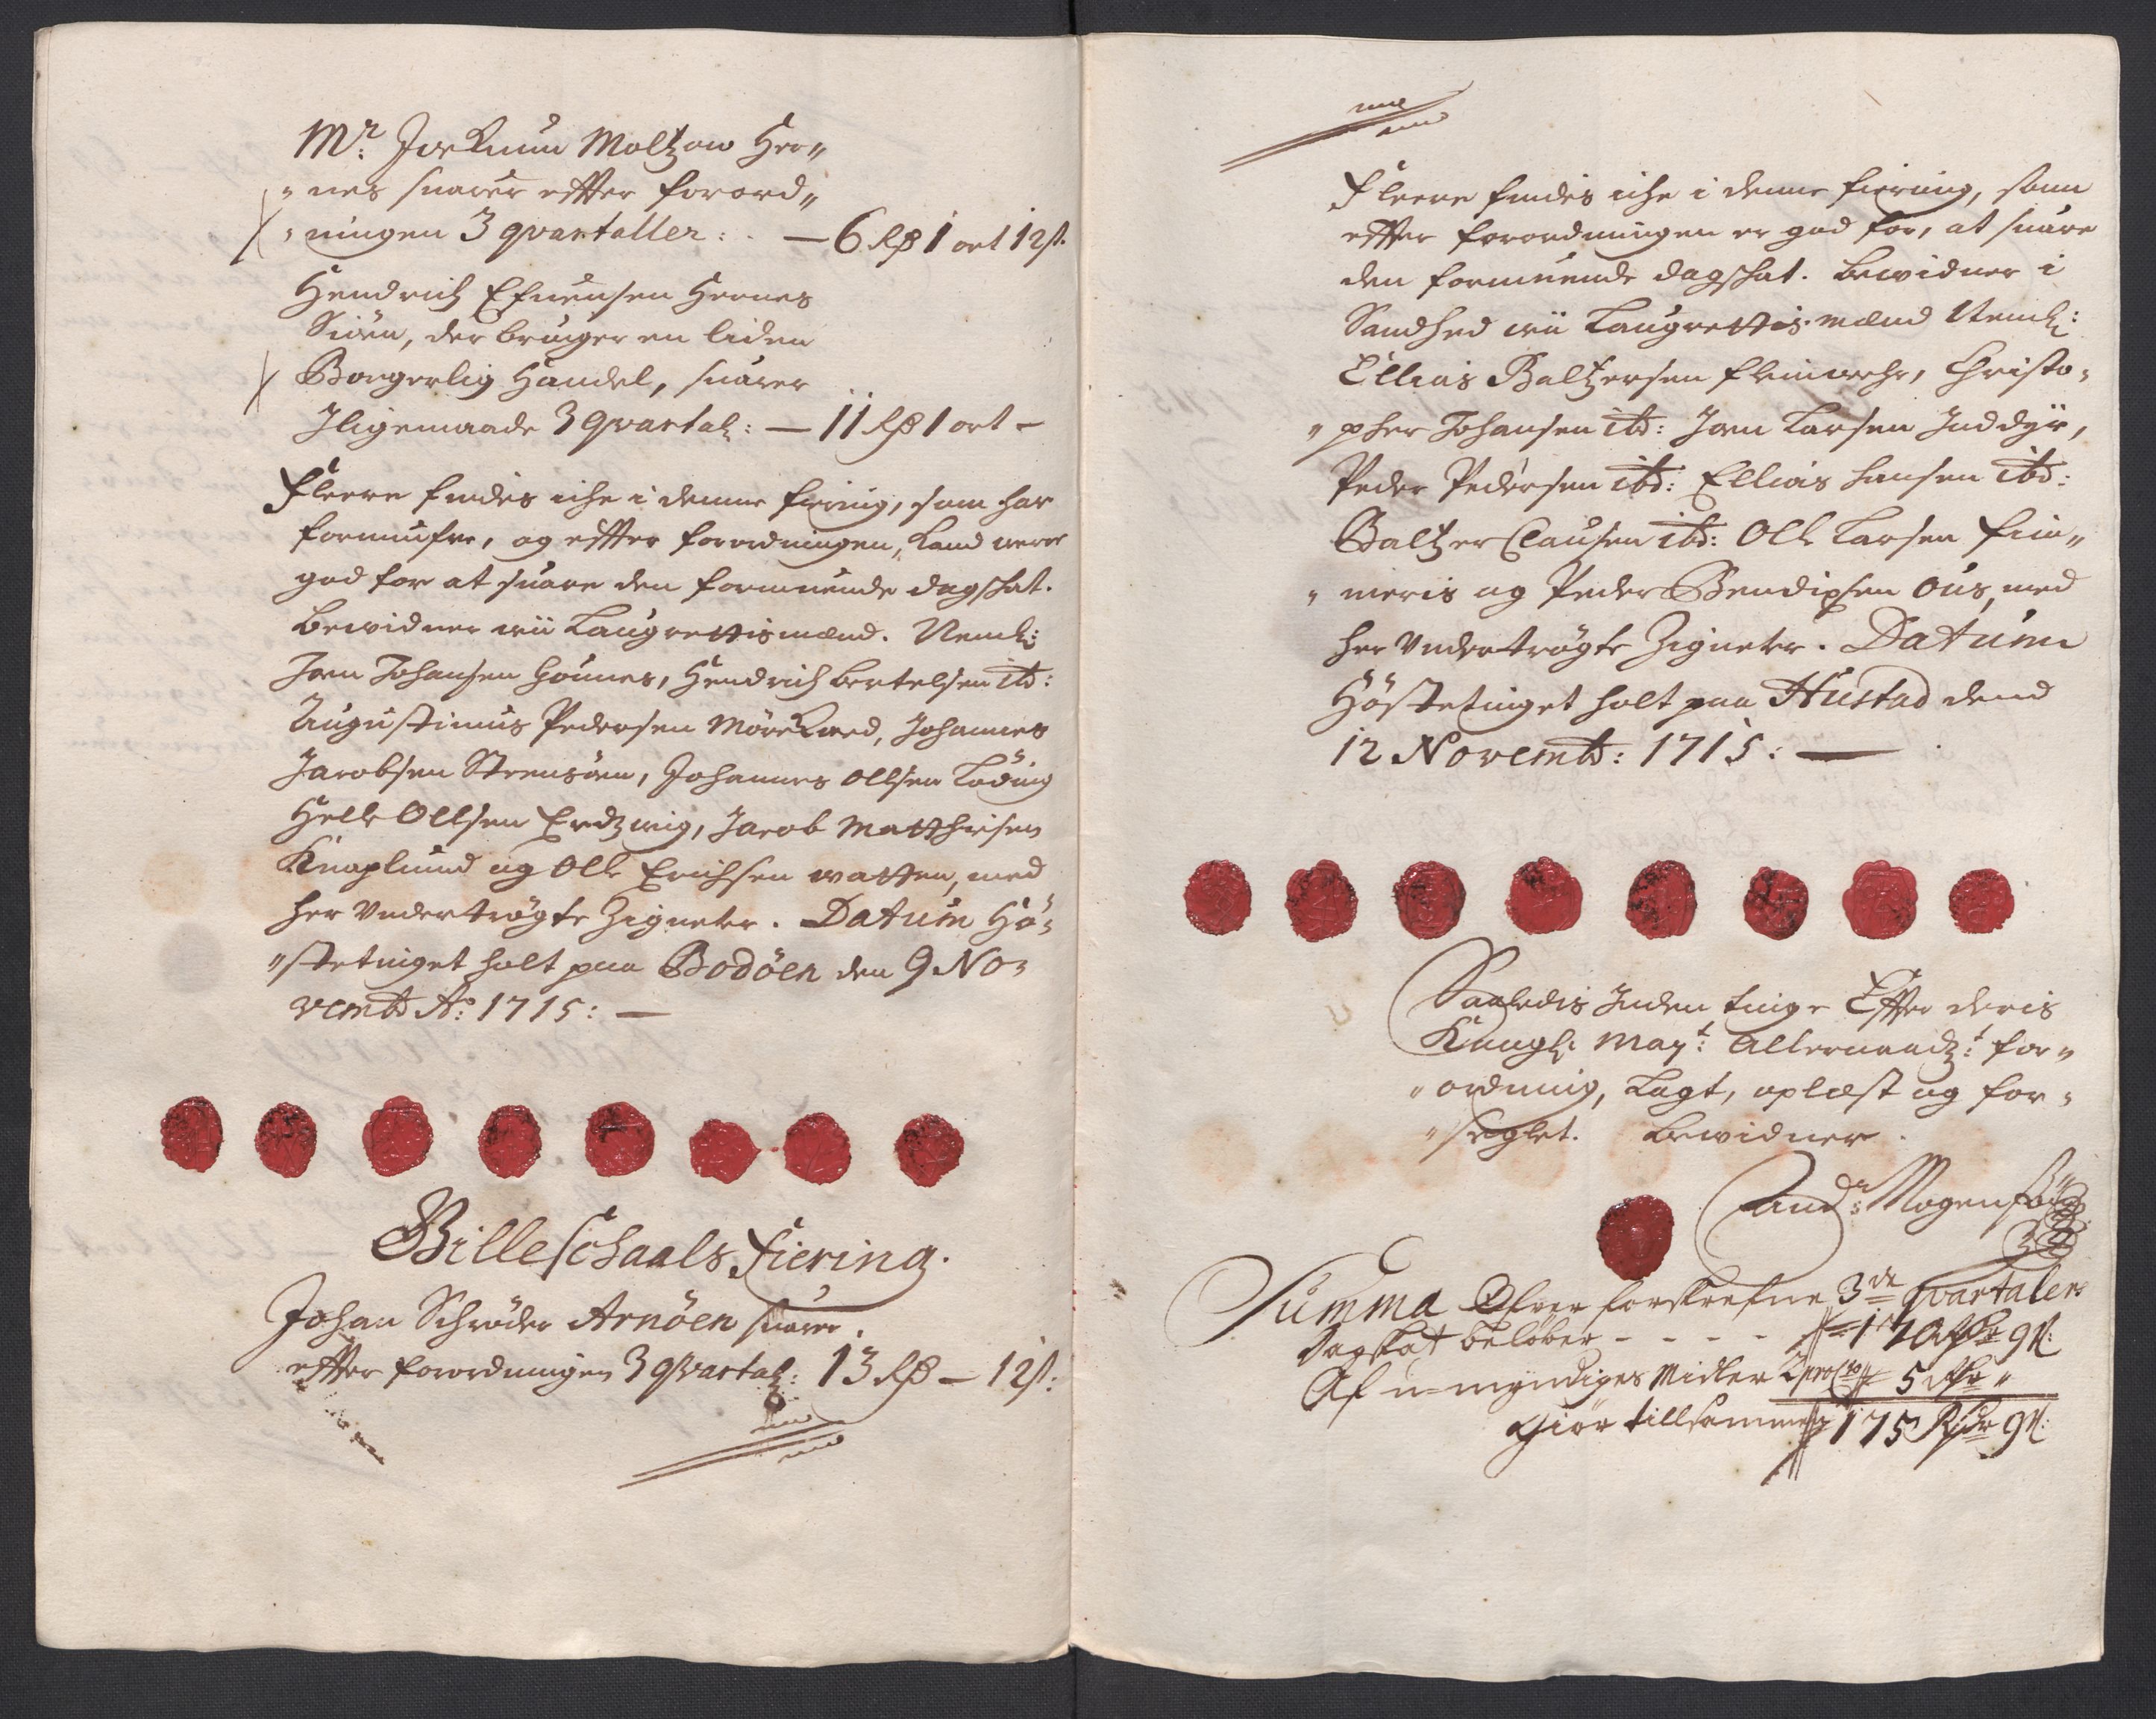 Mr: Jockum Moltzow Her„
„nes suarer effter forord„
„ningen 3 qvartaller: — 6 Rd 1 ort 12 s.
Hendrich Efuensen Hernes
Siöen, der bruger en liden
Borgerlig Handel, suarer
Jligemaade 3 qvartal: — 11 Rd 1 ort —
Fleere findes iche i denne fiering, som har
formufve, og effter forordningen, kand were
god for at suare den formuende dagskat.
Bewidner wii Laugrettismænd. Neml:
Joen Johansen Hounes, Hendrich Bertelsen ibd:
Augustinus Pedersen Mörckued, Johannes
Jacobsen Strensöen, Johannes Ollsen Löding
Helle Ollsen Erdzwig, Jacob Matthisen
Knaplund og Olle Erichsen watten, med
her undertrögte Zigneter. Datum Hö„
„stetinget holt paa Bodöen den 9 No„
vembr Ao: 1715: —
Billeschaals Fiering.
Johan Schröder Arnöen suarer
effter forordningen 3 qvartal: 13 Rd — 12 s:
Fleere findes iche i denne fiering, som
effter forordningen er god for, at suare
den formuende dagskat. Bewidner i
Sandhed wii Laugrettis-mænd Neml:
Ellias Baltzersen , Christo„
„pher Johansen ibd: Joen Larsen Inddyr,
Peder Pedersen ibd: Ellias Hansen ibd:
Baltzer Clausen ibd: Olle Larsen fin„
„neris og Peder Bendixsen Ous, med
her undertrögte Zigneter. Datum
Höstetinget holt paa Hustad dend
12 Novembr: 1715: —
Saaledis Inden tinge Effter deris
Kongl: Mayt: Allernaadst: for„
„ordning, Lagt, oplæst og for„
„seglet. Bewidner
And: Mogensen
Summa Ofver forskrefne 3de qvartalers
Dagskat beløber - - - - 170 Rdr 9 s:
Af u-myndiges Midler 2 proCto 5 Rdr „
Giör tillsammen 175 Rdr 9 s: